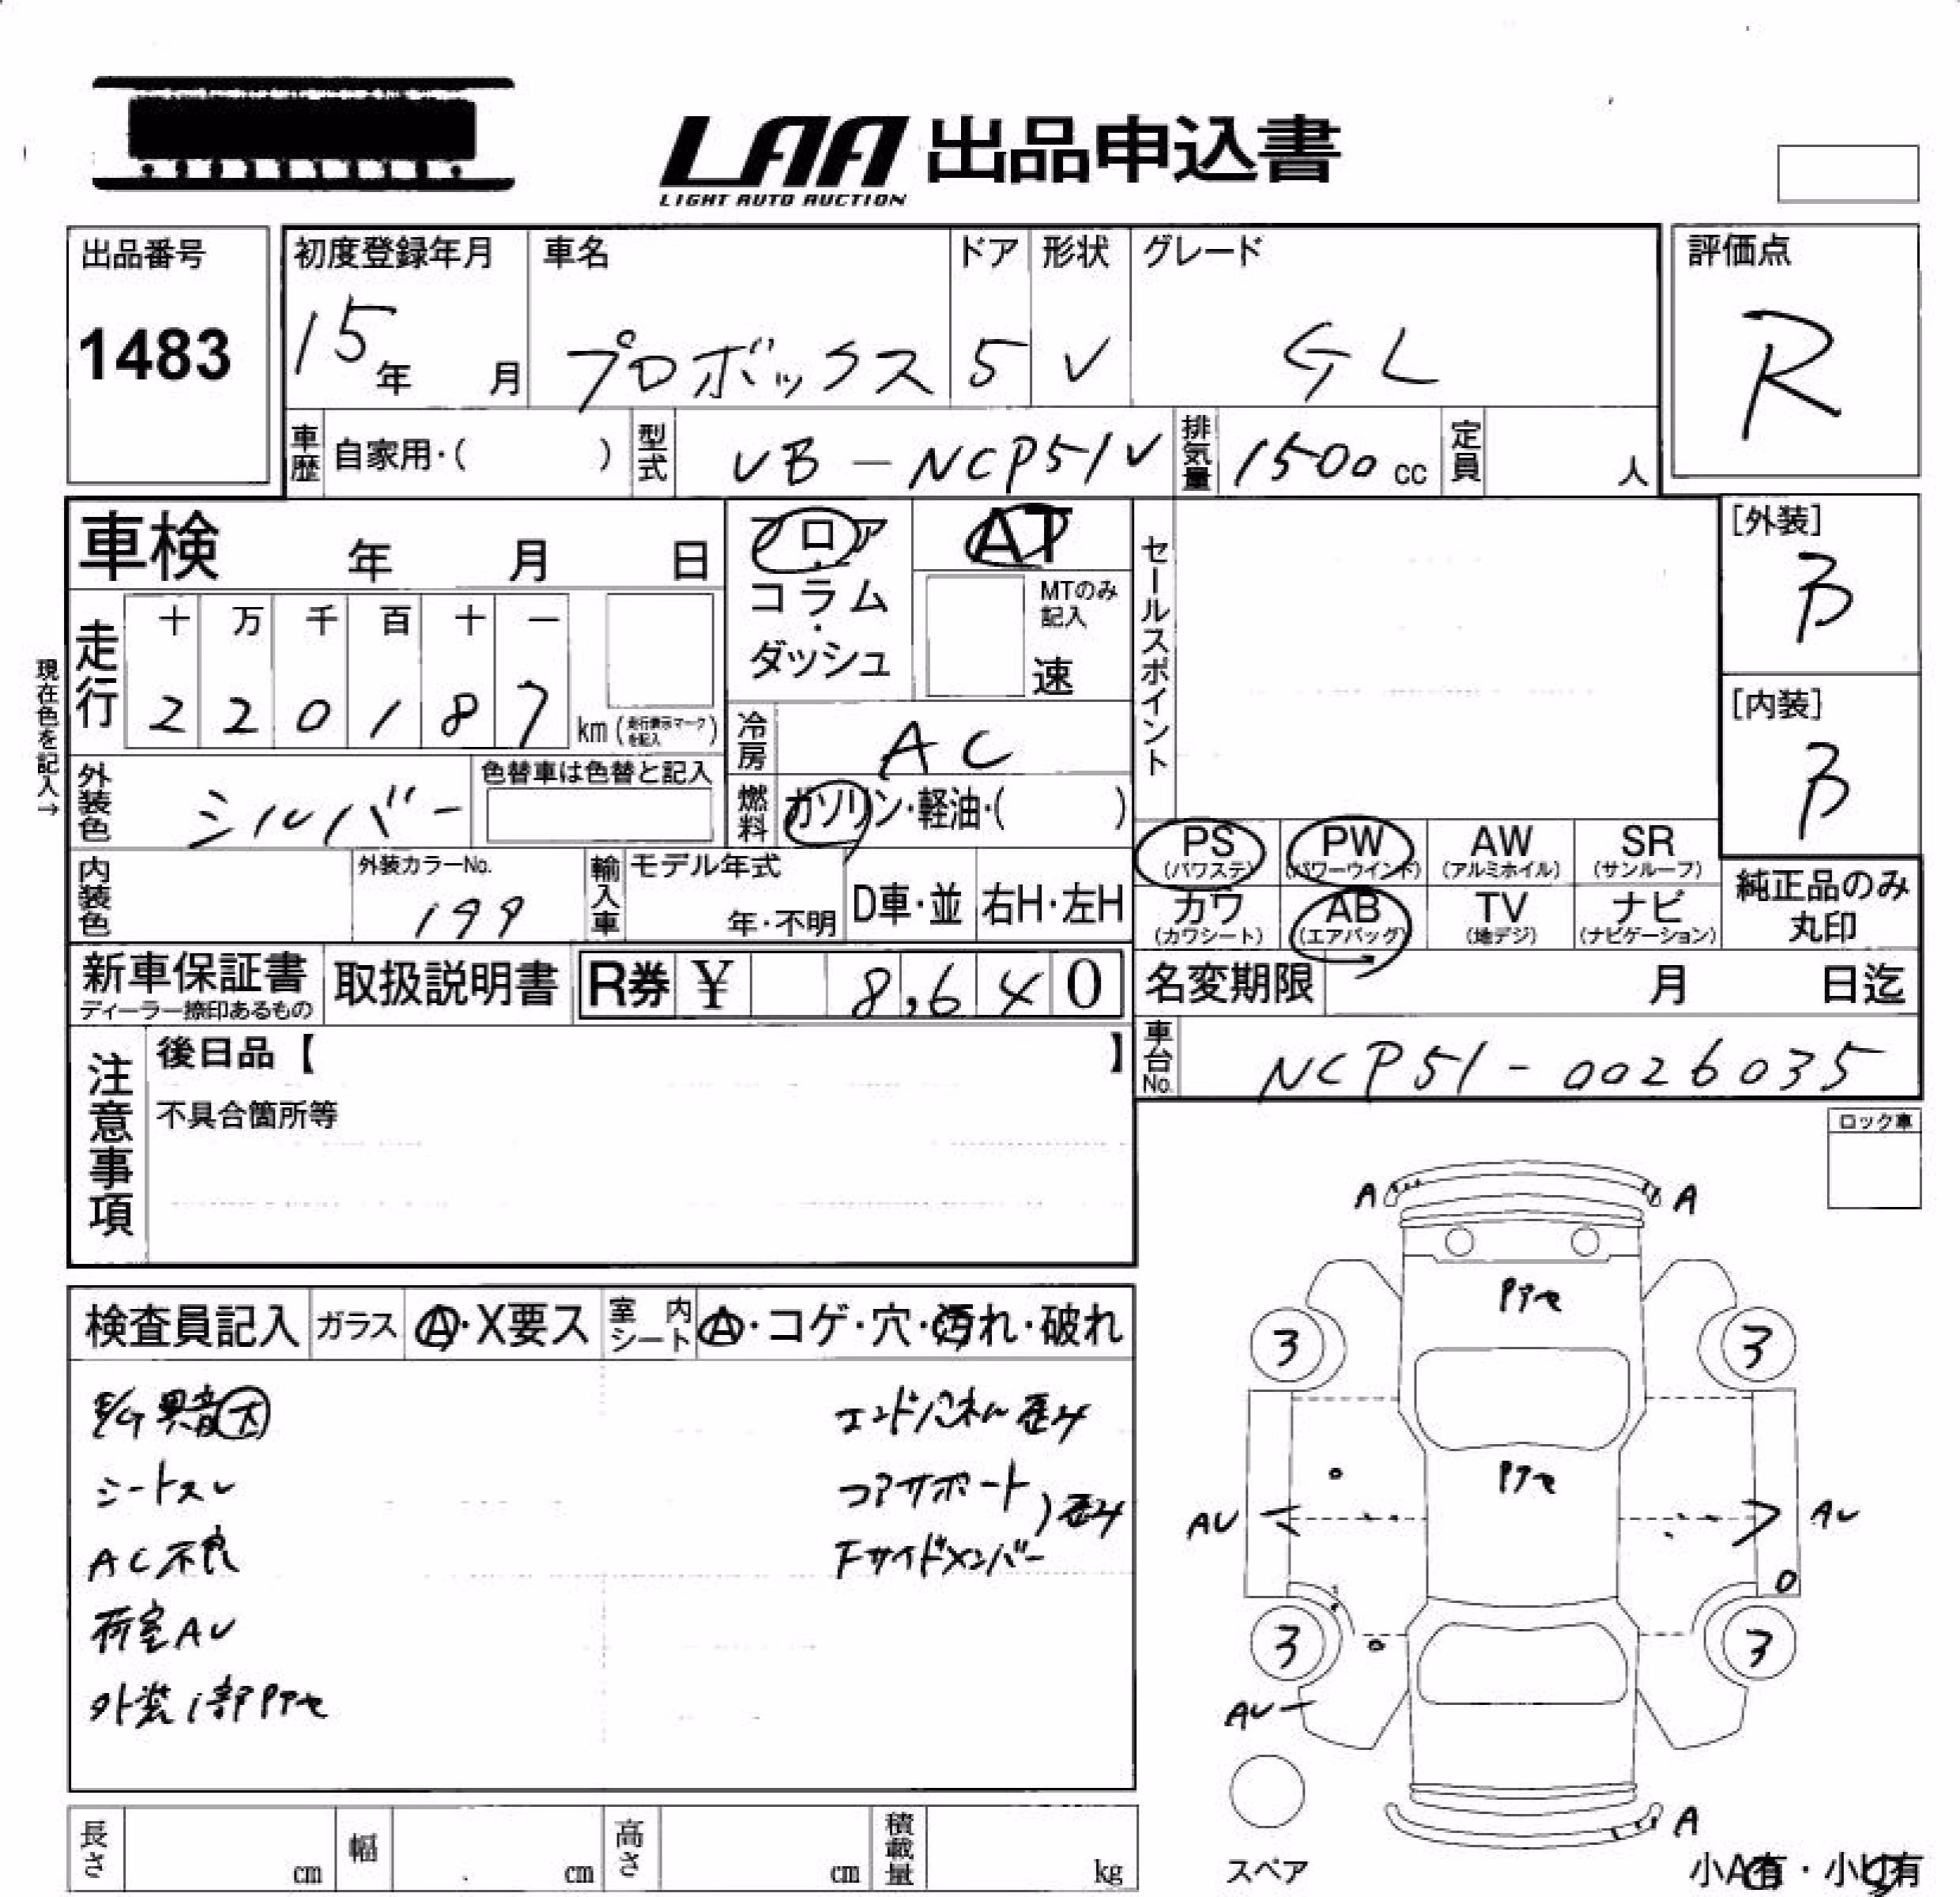 LAA 出品申込書
LIGHT AUTO AUCTION
出品番号
1483
初度登録年月
15年 月
車名
プロボックス
ドア
5
形状
V
グレード
GL
評価点
R
車歴 自家用・( )
型式 UB-NCP51V
排気量 1500cc
定員 人
車検 年 月 日
フロア・コラム・ダッシュ
AT
MTのみ記入
速
セールスポイント
[外装]
B
[内装]
B
現在色を記入→
走行
十 万 千 百 十 一
2 2 0 1 8 7 km (走行表示マークを記入)
冷房 AC
外装色 シルバー
色替車は色替と記入
燃料 ガソリン・軽油・( )
PS (パワステ)
PW (パワーウインド)
AW (アルミホイル)
SR (サンルーフ)
カワ (カワシート)
AB (エアバッグ)
TV (地デジ)
ナビ (ナビゲーション)
純正品のみ丸印
内装色
外装カラーNo.
199
輸入車 モデル年式
年・不明
D車・並
右H・左H
新車保証書
ディーラー捺印あるもの
取扱説明書
R券 ¥ 8,640
名変期限 月 日迄
車台No. NCP51-0026035
注意事項
後日品【 】
不具合箇所等
ロック車
検査員記入
ガラス A・X要ス
室内シート A・コゲ・穴・汚れ・破れ
E/G異音大
シートスレ
AC不良
荷室AU
外装1部Pアセ
エンドパネル歪み
コアサポート
Fサイドメンバー
)歪み
A A
Pアセ
3 3
Pアセ
AU AU
3 3
AU
A
スペア
小A有・小U有
長さ cm
幅 cm
高さ cm
積載量 kg